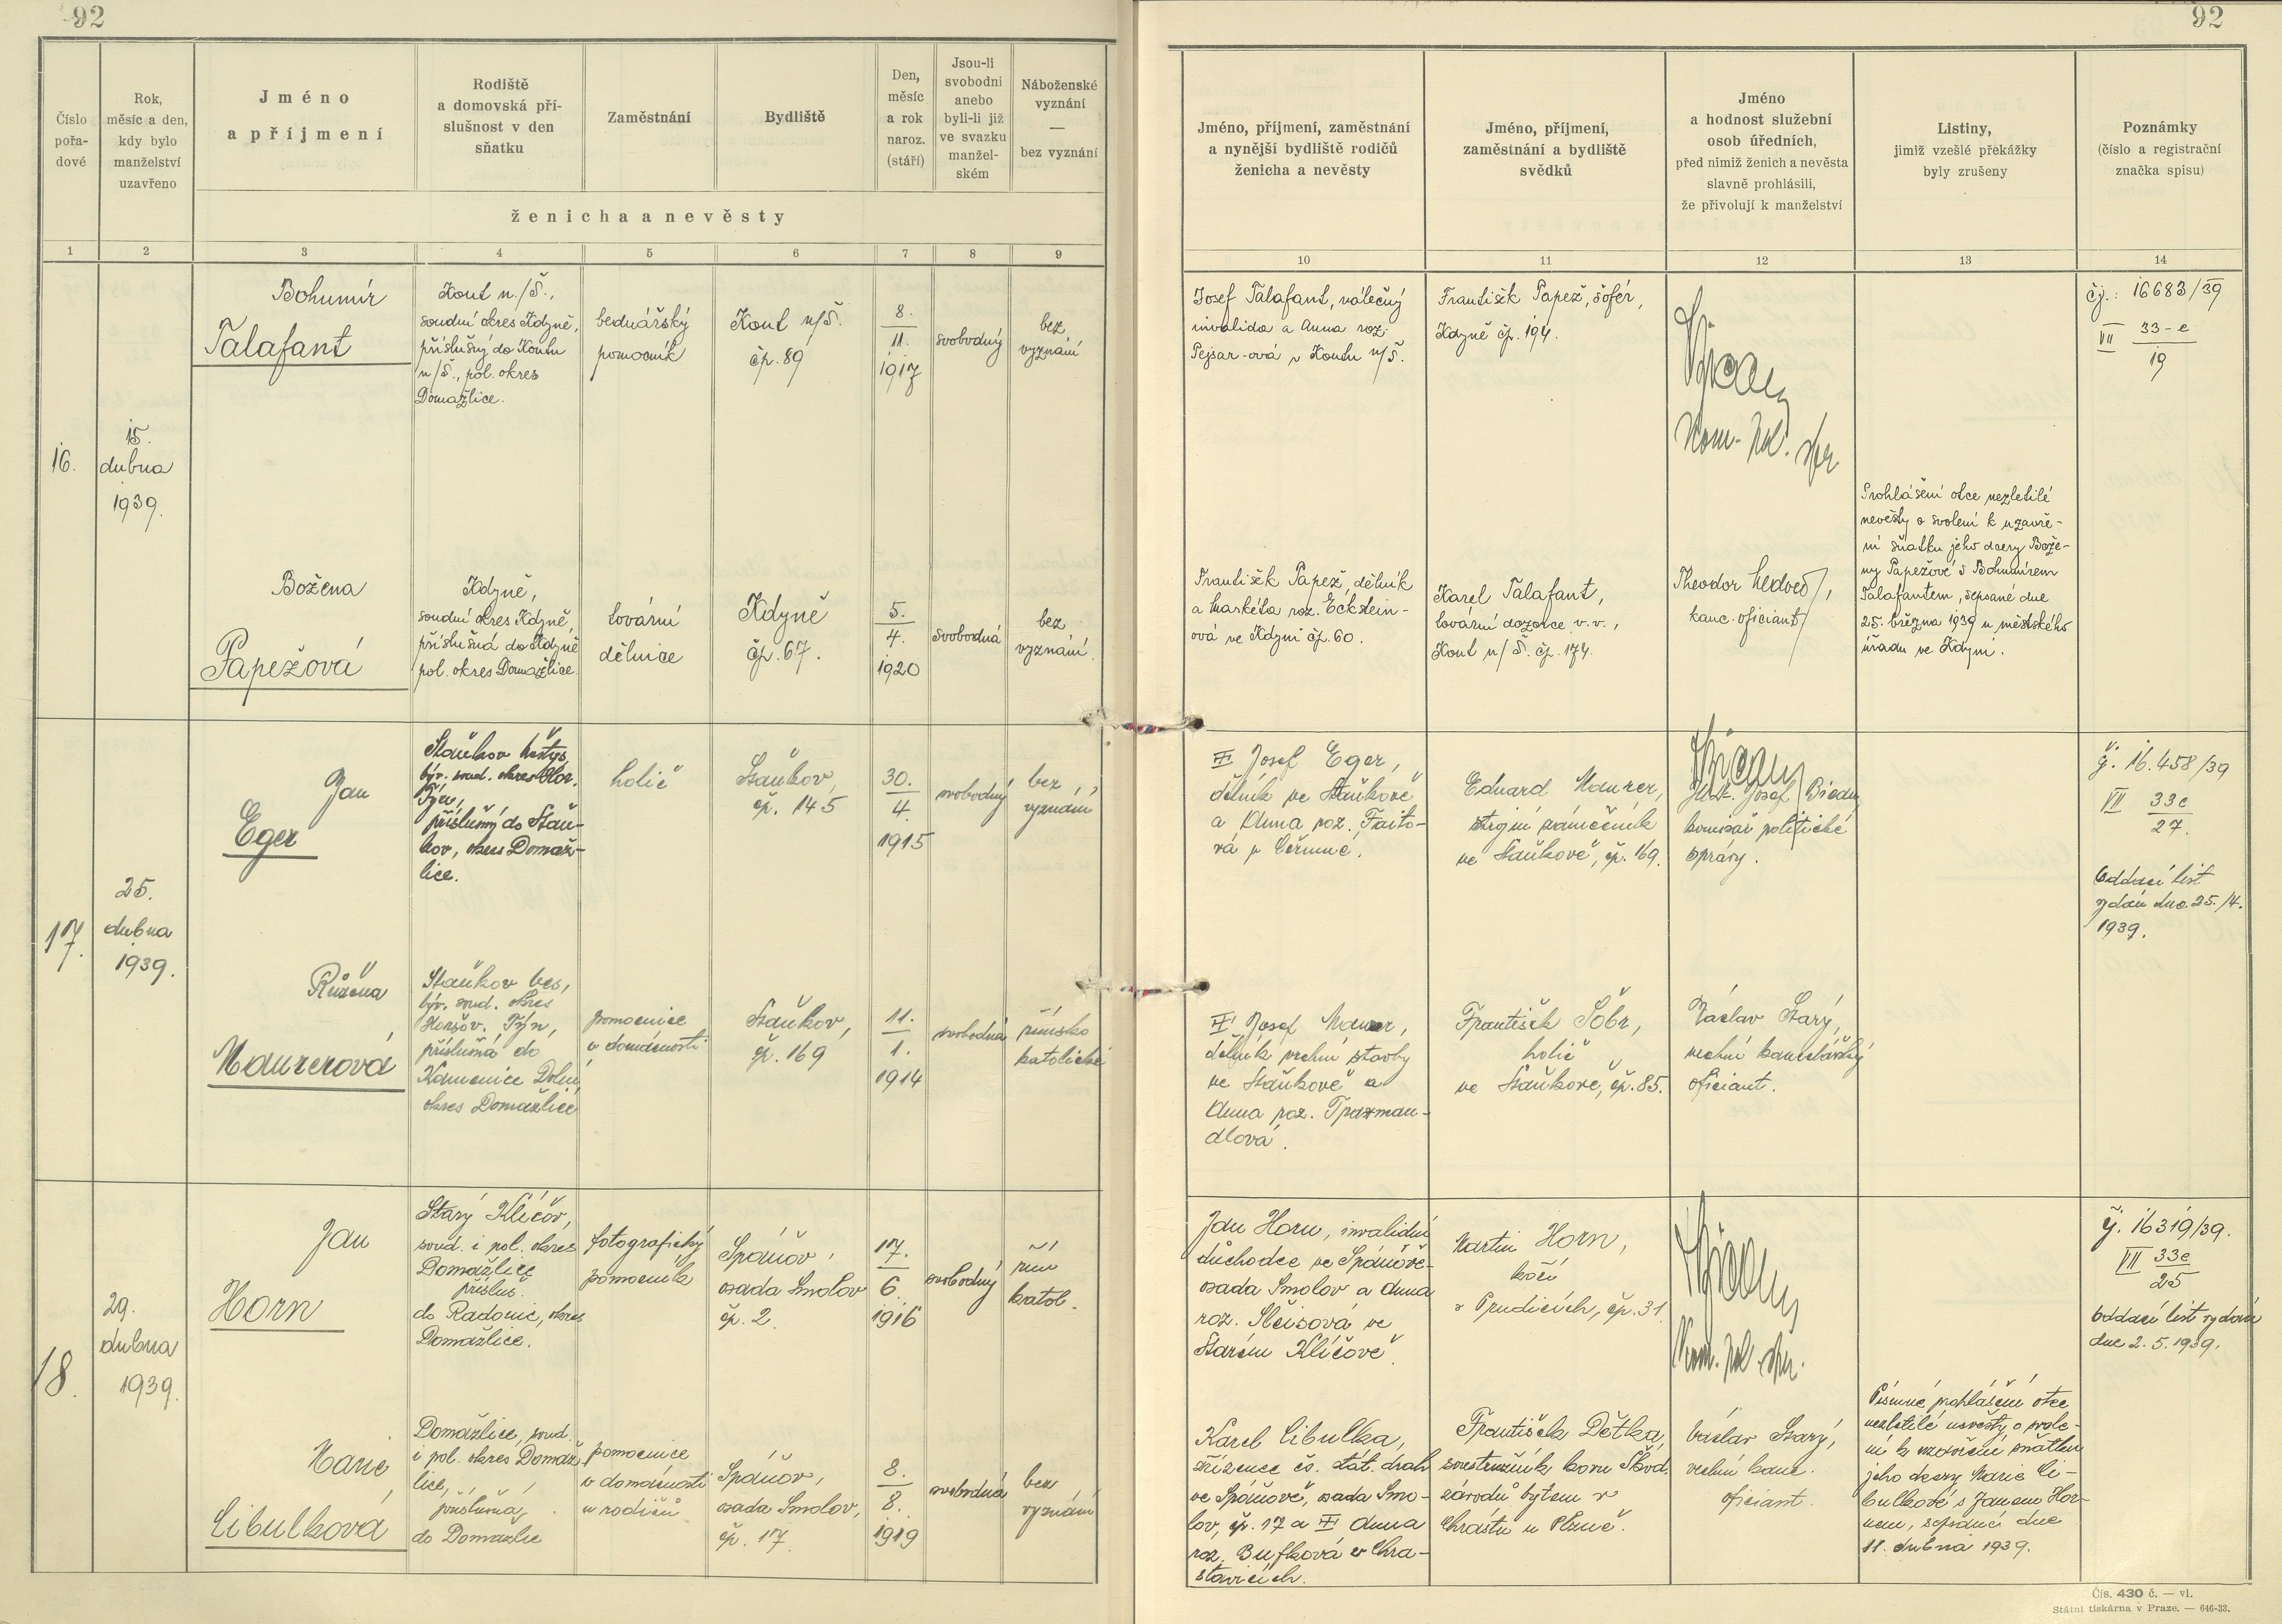 92
92
Číslo pořa-dové
Rok, měsíc a den, kdy bylo manželství uzavřeno
Jméno
a příjmení
Rodiště
a domovská pří-
slušnost v den
sňatku
Zaměstnání
Bydliště
Den,
měsíc
a rok
naroz.
(stáří)
Jsou-li
svobodni
anebo
byli-li již
ve svazku
manžel-
ském
Náboženské
vyznání
—
bez vyznání
ženicha a nevěsty
1 2 3 4 5 6 7 8 9
Jméno, příjmení, zaměstnání
a nynější bydliště rodičů
ženicha a nevěsty
Jméno, příjmení,
zaměstnání a bydliště
svědků
Jméno
a hodnost služební
osob úředních,
před nimiž ženich a nevěsta
slavně prohlásili,
že přivolují k manželství
Listiny,
jimiž vzešlé překážky
byly zrušeny
Poznámky
(číslo a registrační
značka spisu)
10 11 12 13 14
16.
15.
dubna
1939.
Bohumír
Talafant
Kout n./Š.,
soudní okres Kdyně,
příslušný do Koutu
n/Š., pol. okres
Domažlice.
bednářský
pomocník
Kout n/Š.
čp. 89
8.
11.
1917
svobodný
bez
vyznání
Josef Talafant, válečný
invalida a Anna roz.
Pejsar-ová v Koutu n/Š.
František Papež, šofér,
Kdyně čp. 194.
Kom. pol. spr.
čj.: 16683/39
VII 33-e
19
Božena
Papežová
Kdyně,
soudní okres Kdyně,
příslušná do Kdyně
pol. okres Domažlice.
tovární
dělnice
Kdyně
čp. 67.
5.
4.
1920
svobodná
bez
vyznání.
František Papež, dělník
a Markéta roz. Eckstein-
ová ve Kdyni čp. 60.
Karel Talafant,
tovární dozorce v. v.,
Kout n/Š. čp. 174.
Theodor Nedvěd,
kanc. oficiant
Prohlášení otce nezletilé
nevěsty o svolení k uzavře-
ní sňatku jeho dcery Bože-
ny Papežové s Bohumírem
Talafantem, sepsané dne
25. března 1939 u městského
úřadu ve Kdyni.
17.
25.
dubna
1939.
Jan
Eger
Staňkov městys,
býv. soud. okres Hor.
Týn,
příslušný do Staň-
kov, okres Domaž-
lice.
holič
Staňkov,
čp. 145
30.
4.
1915
svobodný
bez
vyznání
Josef Eger,
dělník ve Staňkově
a Anna roz. Faito-
vá v Čermné.
Eduard Maurer,
strojní zámečník
ve Staňkově, čp. 169.
Josef
komisař politické
správy.
čj. 16.458/39
VII 33e
27.
Oddací list
vydán dne 25./4.
1939.
Růžena
Maurerová
Staňkov ves,
býv. soud. okres
Horšov. Týn,
příslušná do
Kamenice Dolní
okres Domažlice
pomocnice
v domácnosti
Staňkov,
čp. 169
11.
1.
1914
svobodná
římsko
katolické
Josef Maurer,
dělník vrchní stavby
ve Staňkově a
Anna roz.
František Šobr,
holič
ve Staňkově, čp. 85.
Václav Starý,
vrchní kancelářský
oficiant.
18.
29.
dubna
1939.
Jan
Horn
Starý Klíčov,
soud. i pol. okres
Domažlice
přísluš.
do Radonic, okres
Domažlice.
fotografický
pomocník
Spáňov,
osada Smolov
čp. 2.
17.
6.
1916
svobodný
řím
katol.
Jan Horn, invalidní
důchodce ve Spáňově-
osada Smolov a Anna
roz. Sleisová ve
Starém Klíčově.
Martin Horn,
kočí
čp. 31.
Kom. pol. spr.
čj. 16319/39.
VII 33e
25
Oddací list vydán
dne 2. 5. 1939.
Marie
Cibulková
Domažlice, soud.
i pol. okres Domaž-
lice,
příslušná
do Domažlic
pomocnice
v domácnosti
u rodičů
Spáňov,
osada Smolov,
čp. 17.
8.
8.
1919
svobodná
bez
vyznání
Karel Cibulka,
zřízenec čs. stát. drah
ve Spáňově, osada Smo-
lov, čp. 17 a Anna
roz. Bufková v Chra-
stavicích.
František Dětka,
soustružník kovu Škod.
závodů bytem v
Chrástu u Plzně.
Václav Starý,
vrchní kanc.
oficiant.
Písemné prohlášení otce
nezletilé nevěsty o svole-
ní k uzavření sňatku
jeho dcery Marie Ci-
bulkové s Janem Hor-
nem, sepsané dne
11. dubna 1939.
Čís. 430 č. — vl.
Státní tiskárna v Praze. — 646-33.